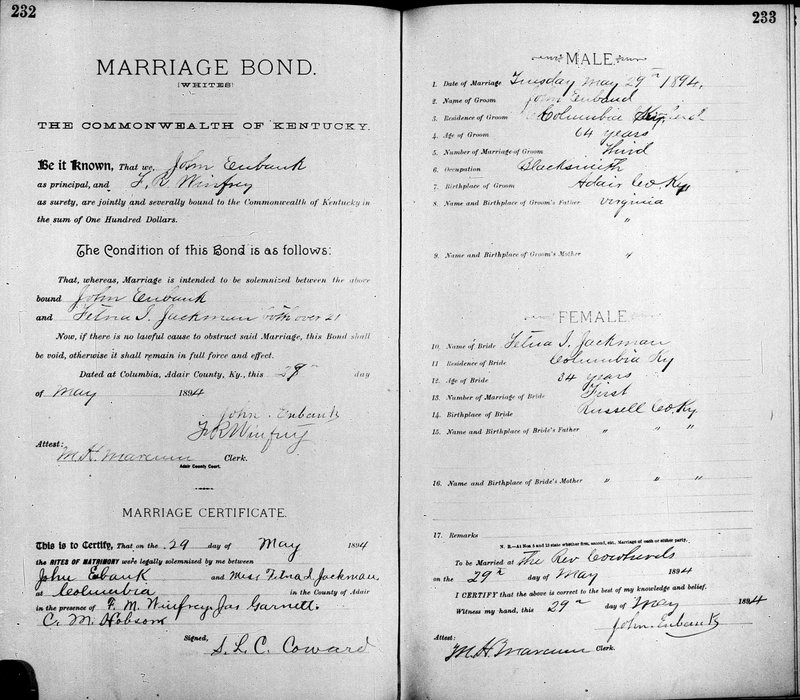 232
MARRIAGE BOND.
(WHITES)
THE COMMONWEALTH OF KENTUCKY.
Be it Known, That we, John Eubank
as principal, and F. R. Winfrey
as surety, are jointly and severally bound to the Commonwealth of Kentucky in
the sum of One Hundred Dollars.
The Condition of this Bond is as follows:
That, whereas, Marriage is intended to be solemnized between the above
bound John Eubank
and Fetna I. Jackman both over 21
Now, if there is no lawful cause to obstruct said Marriage, this Bond shall
be void, otherwise it shall remain in full force and effect.
Dated at Columbia, Adair County, Ky., this 29th day
of May 1894
John Eubank
F R Winfrey
Attest:
M. H. Marcum Clerk.
Adair County Court.
MARRIAGE CERTIFICATE.
This is to Certify, That on the 29 day of May 1894
the RITES OF MATRIMONY were legally solemnized by me between
John Ebank and Miss Fetna I. Jackman
at Columbia in the County of Adair
in the presence of F. M. Winfrey Jas Garnett
C. M. Hobson
Signed, S. L. C. Coward
233
MALE.
1. Date of Marriage Tuesday May 29th 1894.
2. Name of Groom John Eubank
3. Residence of Groom Columbia Ky
4. Age of Groom 64 years
5. Number of Marriage of Groom Third
6. Occupation Blacksmith
7. Birthplace of Groom Adair Co. Ky
8. Name and Birthplace of Groom's Father Virginia
"
9. Name and Birthplace of Groom's Mother "
FEMALE.
10. Name of Bride Fetna I. Jackman
11 Residence of Bride Columbia Ky
12. Age of Bride 34 years
13. Number of Marriage of Bride First
14. Birthplace of Bride Russell Co. Ky
15. Name and Birthplace of Bride's Father " " "
16. Name and Birthplace of Bride's Mother " " "
17. Remarks
N. B.—At Nos. 5 and 13 state whether first, second, etc. Marriage of each or either party.
To be Married at The Rev Cowherds
on the 29th day of May 1894
I CERTIFY that the above is correct to the best of my knowledge and belief.
Witness my hand, this 29th day of May 1894
John Eubank
Attest:
M. H. Marcum Clerk.